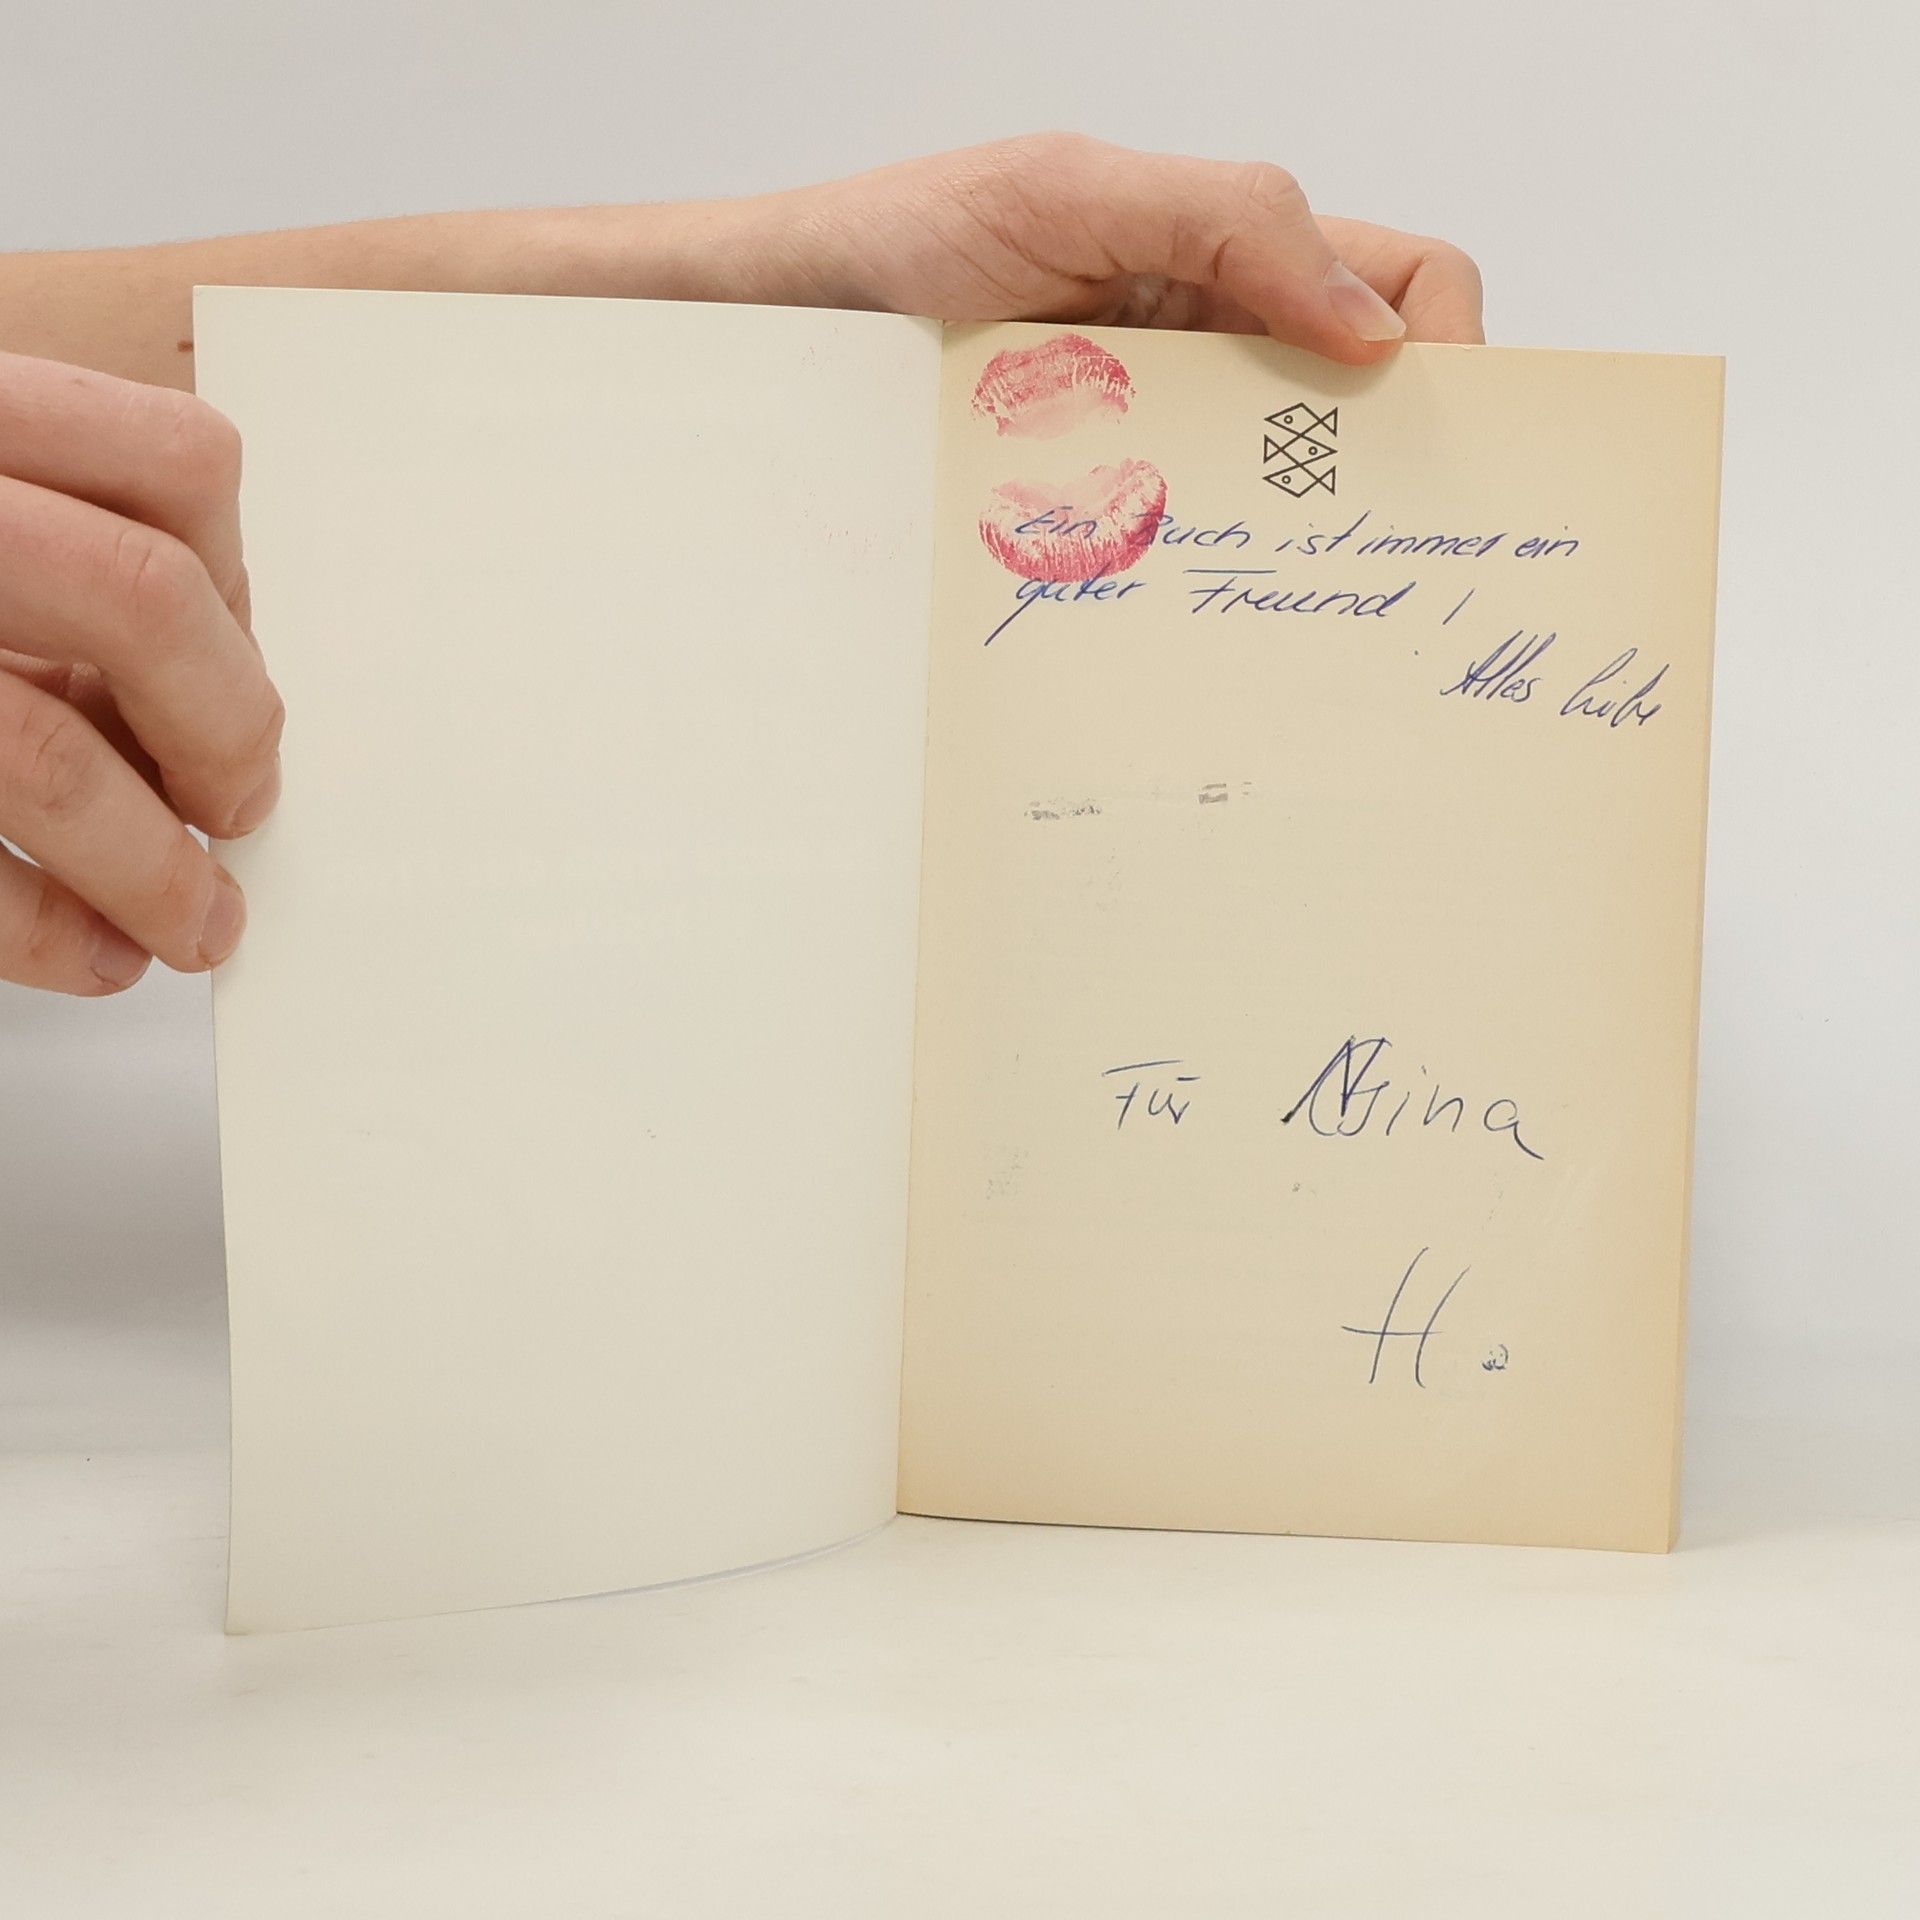 Ein Buch ist immer ein
guter Freund!
Alles Liebe
Für Gina
H.